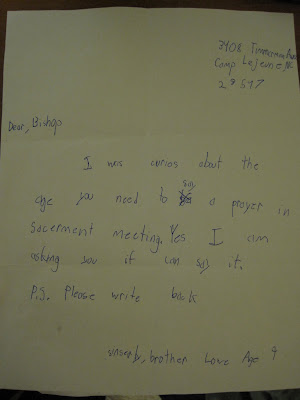 3408 Timmerman Ave
Camp LeJeune, NC
28547
Dear, Bishop
I was curios about the
say
age you need to a prayer in
Sacerment meeting. Yes I am
asking you if can say it.
P.S. Please write back
brother Love Age 9